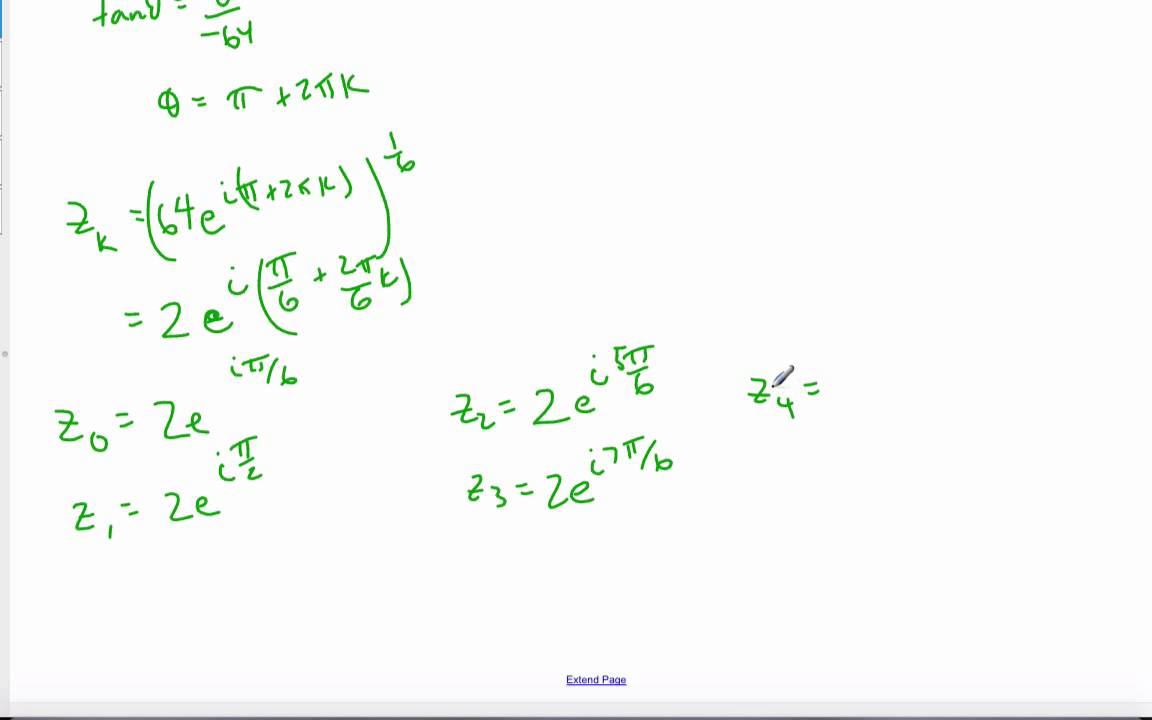 tanθ = 0/-64
θ = π + 2πk
z_k = (64e^{i(π+2πk)})^{1/6}
= 2e^{i(π/6 + 2π/6 k)}
z_0 = 2e^{iπ/6}
z_1 = 2e^{iπ/2}
z_2 = 2e^{i5π/6}
z_3 = 2e^{i7π/6}
z_4 =
Extend Page